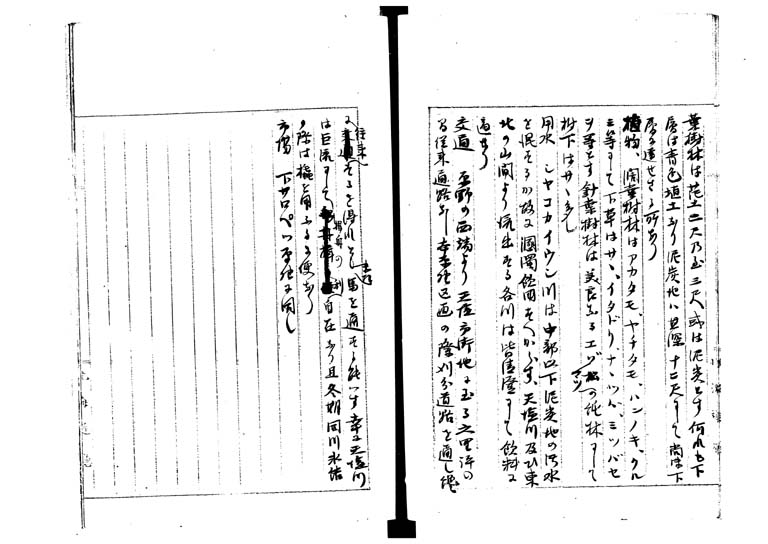 葉樹林は花土二尺乃至三尺或は泥炭とす何れも下
層は青色埴土なり泥炭地は其深十二尺にして尚ほ下
層に達せさる所あり
植物、闊葉樹林はアカタモ、ヤチタモ、ハンノキ、クル
ミ等にして下草はササ、イタドリ、ナナツバ、ミツバセ
リ等とす針葉樹林は美良なるエゾマツの純林にして
樹下はササ多し
用水 シヤコカイウシ川は中部以下泥炭地の汚水
を混するか故に溷濁飲用すへからす、天塩川及ひ東
北の山間より流出する各川は皆清澄にして飲料に
適せり
交通 原野の西端より天塩市街地に至る 里許の
間往来通路なし本年 区画の際刈分道路を通し
往来 するを得 馬を通する能はす幸に天塩川
は巨流にして 舟 の利自在なり且冬期同川氷結
の際は橇を用ふるに便なり
市場 下サロベツ原野に同し